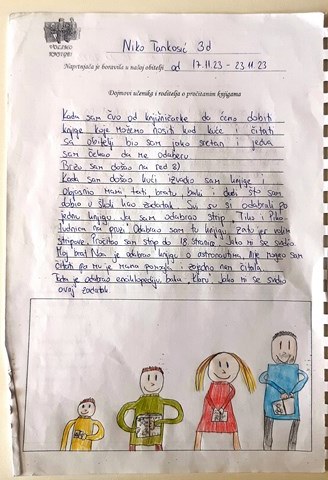 VOLIMO
KNJIGE!
Niko Tankosić 3d
Naprtnjača je boravila u našoj obitelji od 17.11.23 - 23.11.23
Dojmovi učenika i roditelja o pročitanim knjigama
Kada sam čuo od knjižničarke da ćemo dobiti
knjige koje možemo nositi kud kuće i čitati
sa obitelji bio sam jako sretan i jedva
sam čekao da me odaberu
Brzo sam došao na red 8)
Kada sam došao kući izvadio sam knjige i
objasnio mami, tati, bratu, baki i dedi što sam
dobio u školi kao zadatak. Svi su si odabrali po
jednu knjigu. Ja sam odabrao strip "Tika i Pika
Ludnica na plaži". Odabrao sam tu knjigu zato jer volim
stripove. Pročitao sam strip do 18. stranice. Jako mi se svidio.
Moj brat Noa je odabrao knjigu o astronautima. Nije mogao sam
čitati pa mu je mama pomogla i zajedno nam čitala.
Tata je odabrao enciklopediju, baka "Koru". Jako mi se svidio
ovaj zadatak.